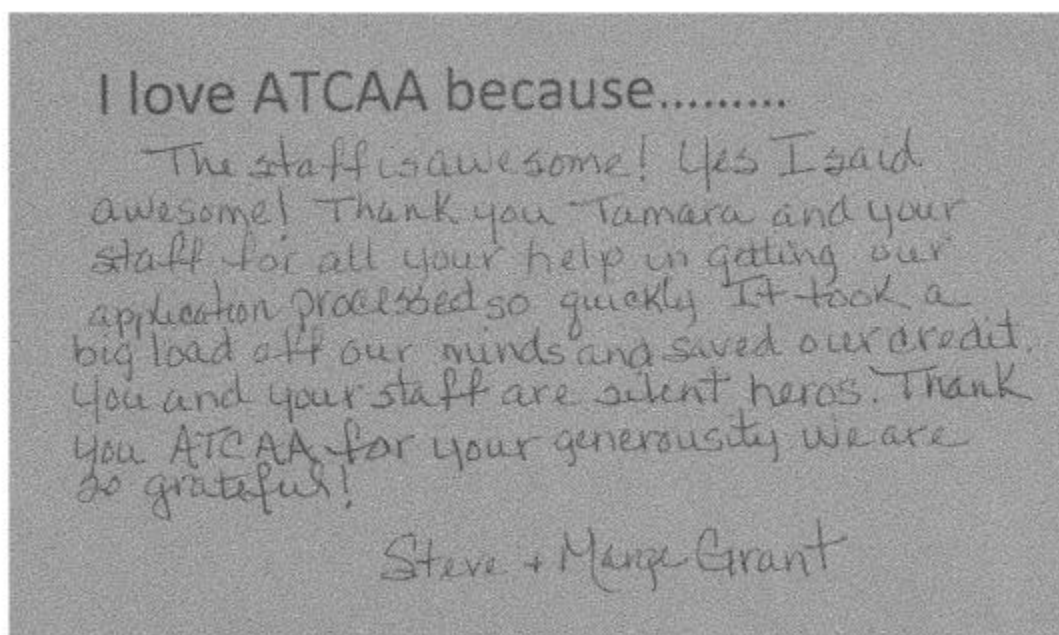 I love ATCAA because.........
The staff is awesome! Yes I said
awesome! Thank you Tamara and your
staff for all your help in getting our
application processed so quickly It took a
big load off our minds and saved our credit.
You and your staff are silent heros. Thank
you ATCAA for your generousity we are
so grateful!
Steve + Marge Grant